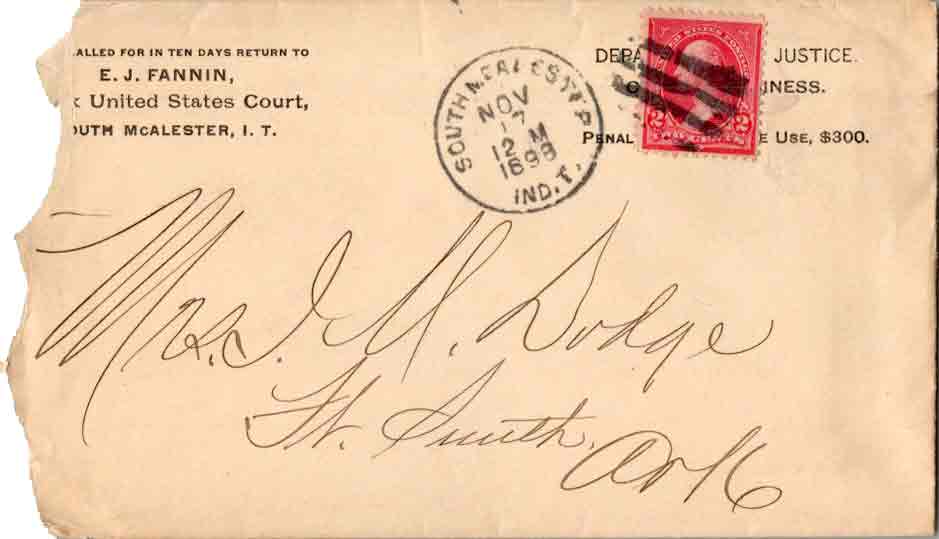 ALLED FOR IN TEN DAYS RETURN TO
E. J. FANNIN,
k United States Court,
OUTH MCALESTER, I. T.
SOUTH MCALESTER
NOV
17
12 M
1898
IND. T.
DEPA JUSTICE.
O INESS.
PENAL E USE, $300.
2 2
Mrs. J. M. Dodge
Ft. Smith,
Ark